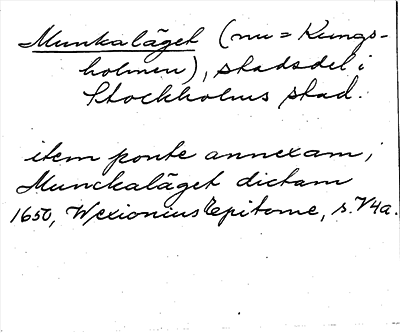 Munkaläget (nu = Kungs-
holmen), stadsdel i
Stockholms stad.
item ponte annexam,
Munckaläget dictam
1650, Wexionius Epitome, s. V4a.